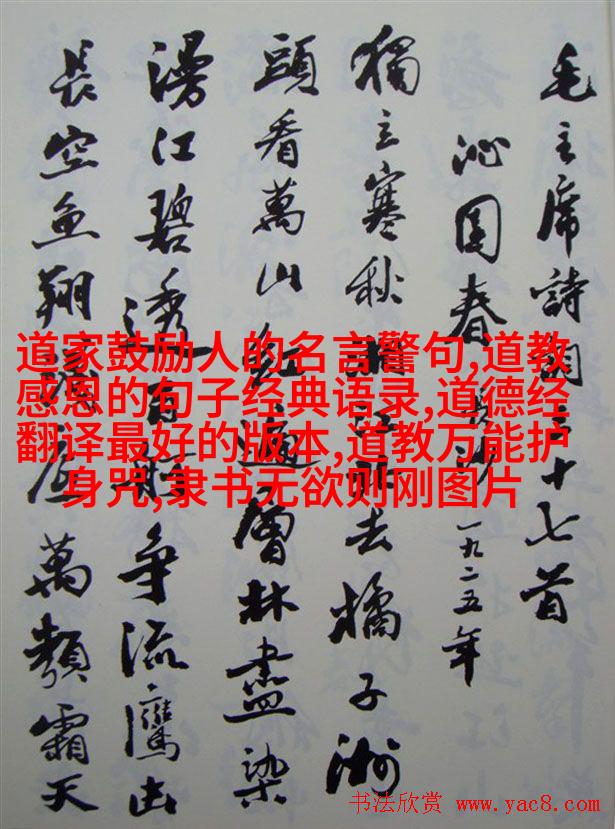 毛主席詩詞三十七首
沁園春 長沙 一九二五年
獨立寒秋湘江北去橘子洲
頭看萬山红遍層林盡染
漫江碧透百舸争流鷹击
長空鱼翔淺底萬類霜天
道家鼓励人的名言警句,道教
感恩的句子经典语录,道德经
翻译最好的版本,道教万能护
身咒,隶书无欲则刚图片
书法欣赏 www.yac8.com